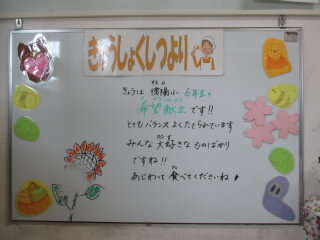 きゅうしょくしつより
きょうは 小 6年生の
希望献立です!!
とてもバランスよくたてられています
みんな大好きなものばかり
ですね!!
あじわって食べてくださいね!